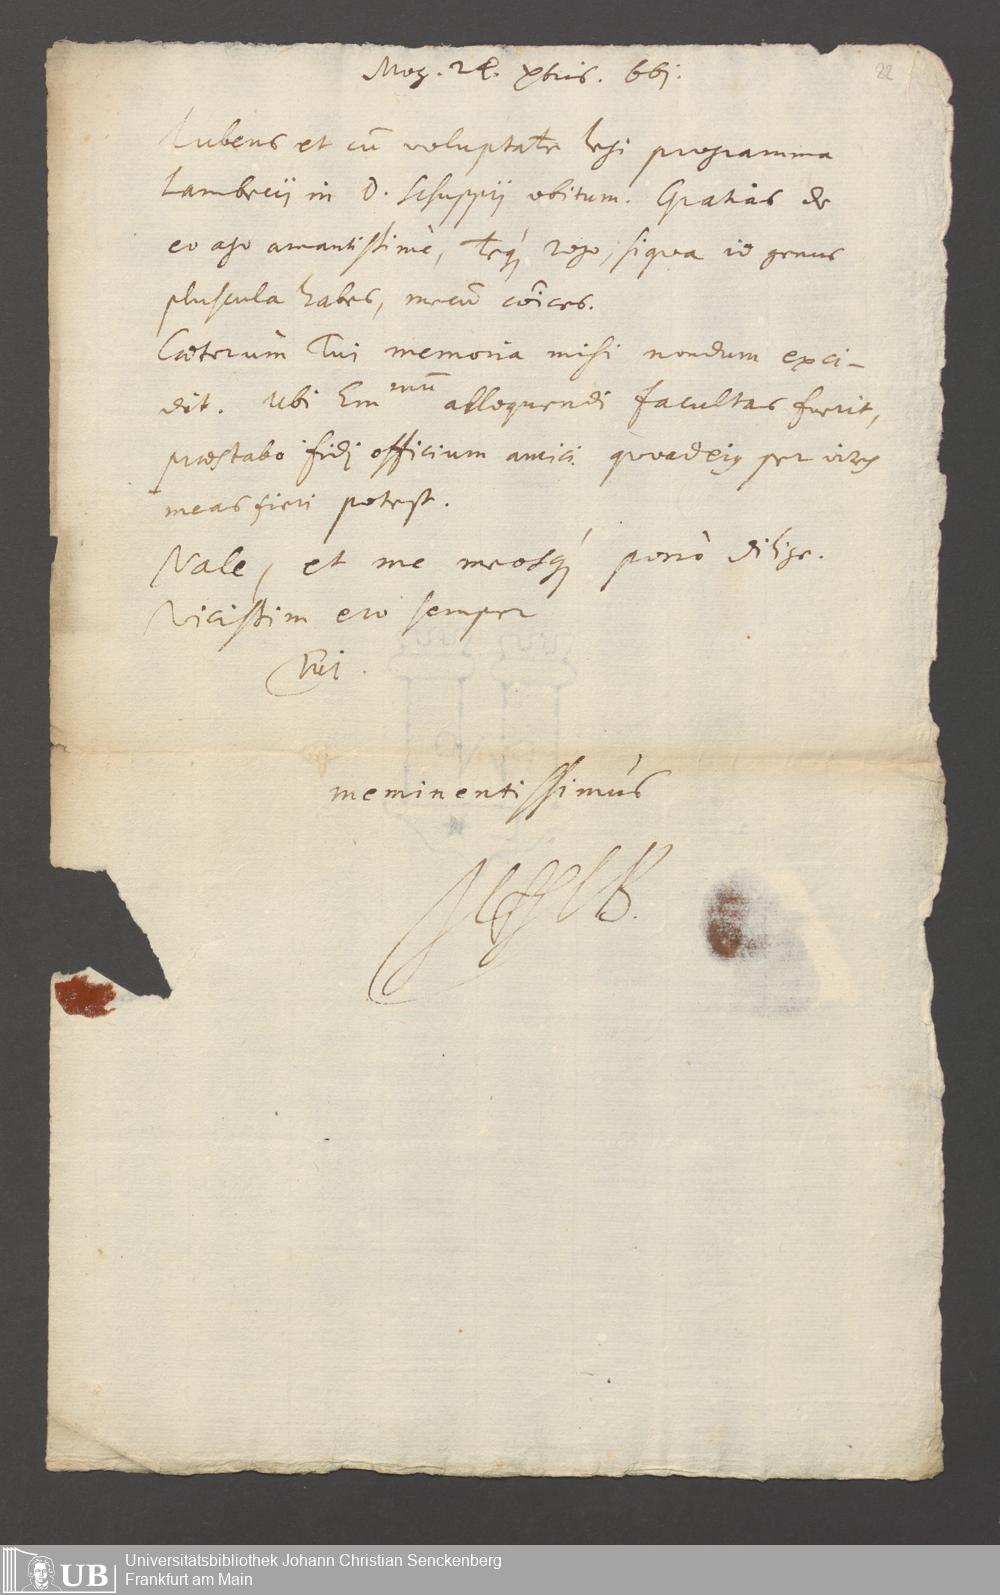 Mog. 24. Xbris. 661.
22
Lubens et cū voluptate legi programma
Lambecij in D. Schuppij obitum. Gratias de
eo ago amantissimè, teq́ꝫ rogo, siqua id genus
pluscula habes, mecū cōīces.
Cæterùm Tui memoria mihi nondum exci-
dit. Ubi Emmū alloquendi facultas fuerit,
præstabo fidj officium amici quoad eiꝫ per vires
meas fieri potest.
Vale, et me meosq́ꝫ porrò dilige.
Vicissim ero semper
Tui.
meminentissimus
B.
Universitätsbibliothek Johann Christian Senckenberg
Frankfurt am Main
UB